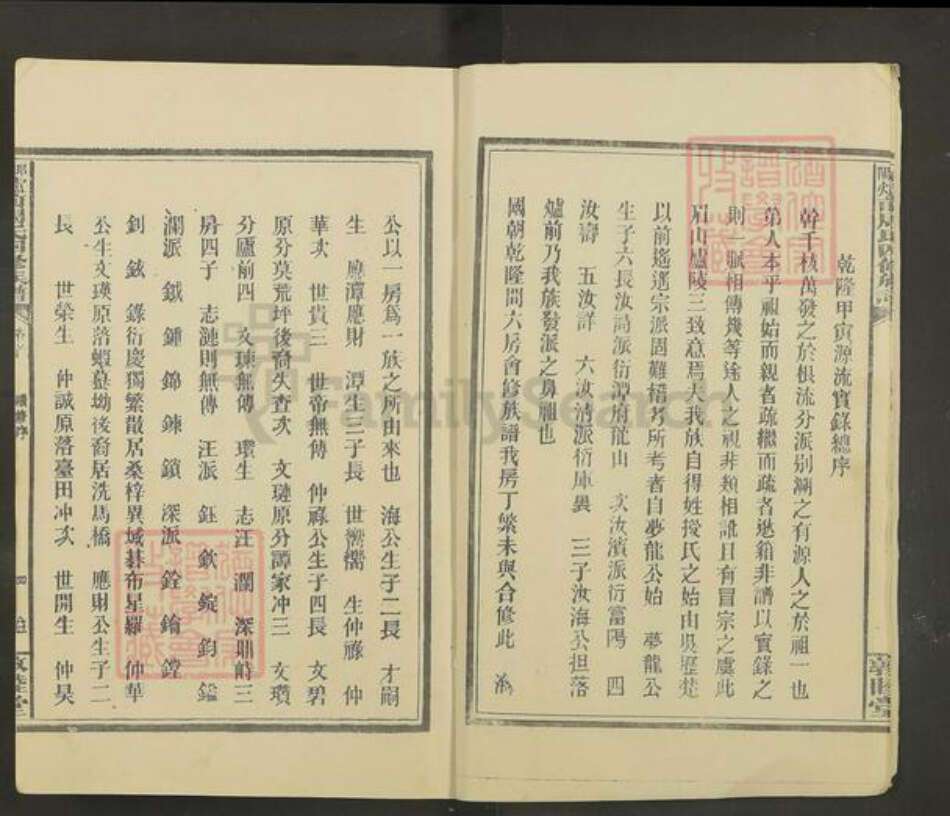 乾隆甲寅源流實錄總序
幹千枝萬發之於根流分派別溯之有源人之於祖一也
第人本乎祖始而親者疏繼而疏者邈籍非譜以實錄之
則一脈相傳幾等途人之視非類相訛且有冒宗之虞此
眉山廬陵三致意焉夫我族自得姓授氏之始由吳歷楚
以前遙遙宗派固難稽考所考者自夢龍公始 夢龍公
生子六長汝詩派衍潭府龍山 次汝濱派衍富陽 四
汝壽 五汝詳 六汝清派衍庫裏 三子汝海公担落
爐前乃我族發派之鼻祖也
國朝乾隆間六房會修族譜我房丁繁未與合修此 海
公以一房為一族之所由來也 海公生子二長 才嗣
生 應潭應財 潭生三子長 世 生仲祿 仲
華次 世貴三 世帝無傳 仲祿公生子四長 文碧
原分莫荒坪後裔失查次 文璉原分譚家冲三 文瓚
分廬前四 文瑓無傳 瓚生 志汪 瀾 深 漣時三
房四子 志漣則無傳 汪派 鈺 欽 錠 鈞 鎰
瀾派 鉞 鍾 錦 鍊 鎖 深派 銓 錀 鏜
釗 錸 錄衍慶獨繁散居桑梓異域碁布星羅 仲華
公生文瑛原落蝦蟇坳後裔居洗馬橋 應財公生子二
長 世榮生 仲誠原落臺田冲次 世開生 仲昊
四
FamilySearch